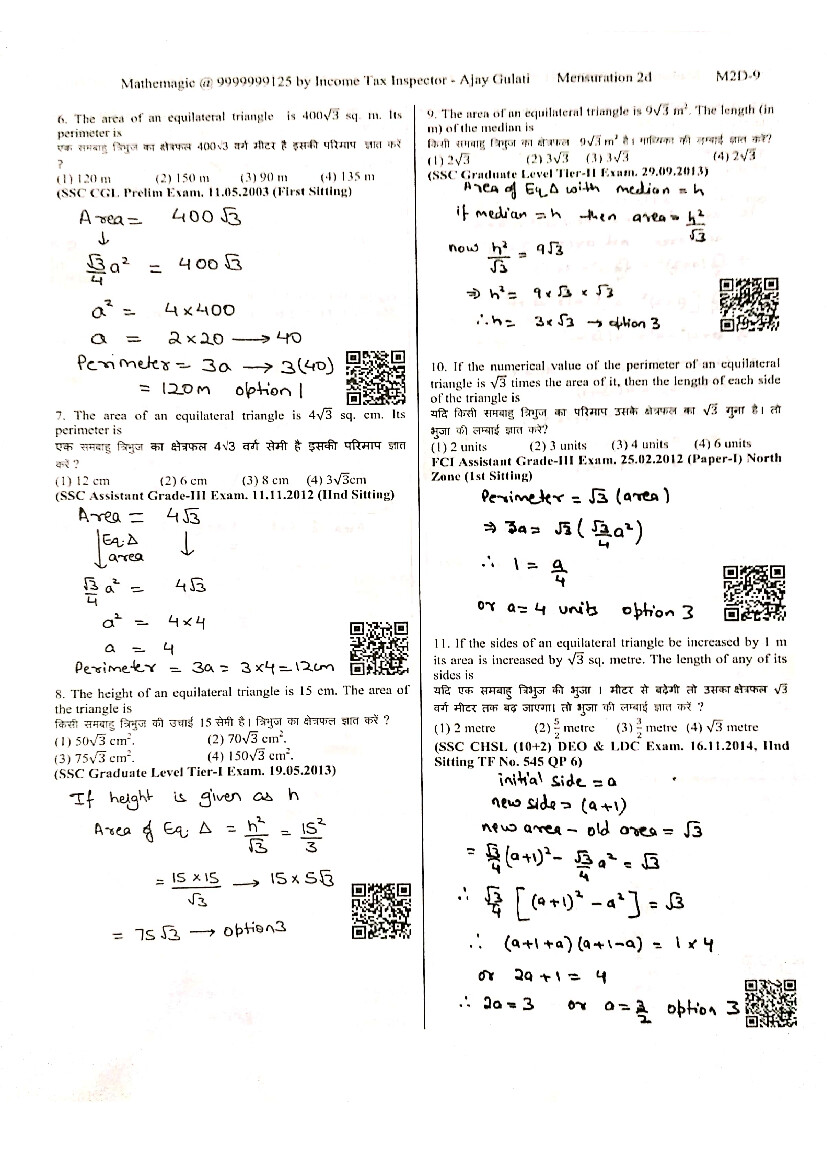 Mathemagic @ 9999999125 by Income Tax Inspector - Ajay Gulati Mensuration 2d M2D-9
6. The area of an equilateral triangle is 400√3 sq. m. Its
perimeter is
एक समबाहु त्रिभुज का क्षेत्रफल 400√3 वर्ग मीटर है इसकी परिमाप ज्ञात करें
?
(1) 120 m (2) 150 m (3) 90 m (4) 135 m
(SSC CGL Prelim Exam. 11.05.2003 (First Sitting)
Area = 400√3
↓
√3/4 a² = 400√3
a² = 4×400
a = 2×20 → 40
Perimeter = 3a → 3(40)
= 120m option 1
7. The area of an equilateral triangle is 4√3 sq. cm. Its
perimeter is
एक समबाहु त्रिभुज का क्षेत्रफल 4√3 वर्ग सेमी है इसकी परिमाप ज्ञात
करें ?
(1) 12 cm (2) 6 cm (3) 8 cm (4) 3√3cm
(SSC Assistant Grade-III Exam. 11.11.2012 (IInd Sitting)
Area = 4√3
↓ Eq. Δ area ↓
√3/4 a² = 4√3
a² = 4×4
a = 4
Perimeter = 3a = 3×4 = 12cm
8. The height of an equilateral triangle is 15 cm. The area of
the triangle is
किसी समबाहु त्रिभुज की उचाई 15 सेमी है। त्रिभुज का क्षेत्रफल ज्ञात करें ?
(1) 50√3 cm². (2) 70√3 cm².
(3) 75√3 cm². (4) 150√3 cm².
(SSC Graduate Level Tier-I Exam. 19.05.2013)
If height is given as h
Area of Eq. Δ = h²/√3 = 15²/3
= 15×15/√3 → 15×5√3
= 75√3 → option 3
9. The area of an equilateral triangle is 9√3 m². The length (in
m) of the median is
किसी समबाहु त्रिभुज का क्षेत्रफल 9√3 m² है। माध्यिका की लम्बाई ज्ञात करें?
(1) 2√3 (2) 3√3 (3) 3√3 (4) 2√3
(SSC Graduate Level Tier-II Exam. 29.09.2013)
Area of Eq. Δ with median = h
if median = h then area = h²/√3
now h²/√3 = 9√3
⇒ h² = 9×√3×√3
∴ h = 3×√3 → option 3
10. If the numerical value of the perimeter of an equilateral
triangle is √3 times the area of it, then the length of each side
of the triangle is
यदि किसी समबाहु त्रिभुज का परिमाप उसके क्षेत्रफल का √3 गुना है। तो
भुजा की लम्बाई ज्ञात करें?
(1) 2 units (2) 3 units (3) 4 units (4) 6 units
FCI Assistant Grade-III Exam. 25.02.2012 (Paper-I) North
Zone (1st Sitting)
Perimeter = √3 (area)
⇒ 3a = √3 (√3/4 a²)
∴ 1 = a/4
or a = 4 units option 3
11. If the sides of an equilateral triangle be increased by 1 m
its area is increased by √3 sq. metre. The length of any of its
sides is
यदि एक समबाहु त्रिभुज की भुजा । मीटर से बढ़ेगी तो उसका क्षेत्रफल √3
वर्ग मीटर तक बढ़ जाएगा। तो भुजा की लम्बाई ज्ञात करें ?
(1) 2 metre (2) 5/2 metre (3) 3/2 metre (4) √3 metre
(SSC CHSL (10+2) DEO & LDC Exam. 16.11.2014, IInd
Sitting TF No. 545 QP 6)
initial side = a
new side = (a+1)
new area - old area = √3
= √3/4 (a+1)² - √3/4 a² = √3
∴ √3/4 [(a+1)² - a²] = √3
∴ (a+1+a)(a+1-a) = 1×4
or 2a+1 = 4
∴ 2a = 3 or a = 3/2 option 3